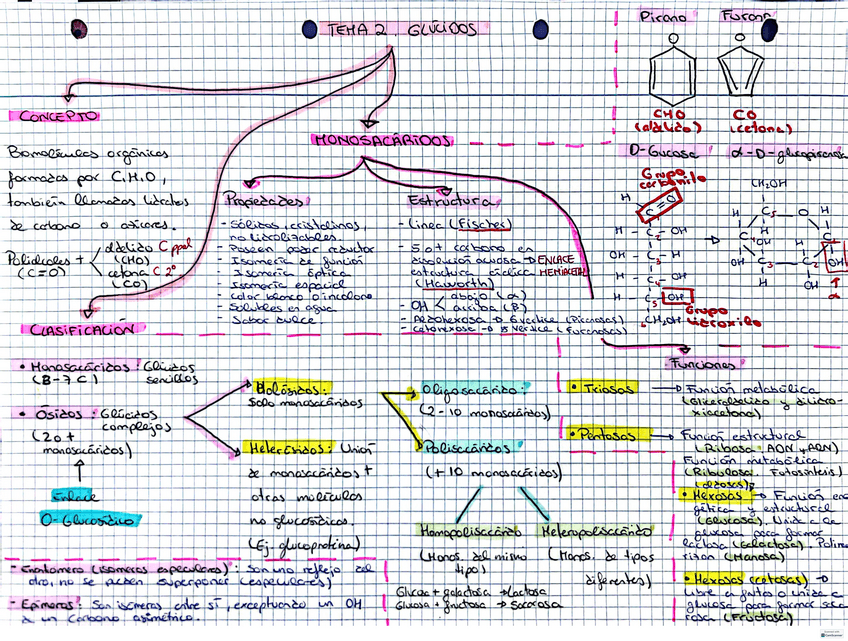 TEMA 2. GLÚCIDOS
Pirano Furano
CHO CO
(aldehído) (cetona)
CONCEPTO
Biomoléculas orgánicas
formadas por C,H,O,
también llamadas hidratos
de carbono o azúcares.
Polialcoles + aldehído C ppal
(C=O) (CHO)
cetona C 2º
(CO)
MONOSACÁRIDOS
Propiedades
- Sólidos, cristalinos
no hidrolizables
- Poseen poder reductor
- Isomería de función
- Isomería óptica
- Isomería espacial
- Color blanco o incoloro
- Solubles en agua
- Sabor dulce.
Estructura
- Linea (Fischer)
- 5 o + carbono en
disolución acuosa → ENLACE
estructura cíclica HEMIACETAL
(Haworth)
- OH < abajo (α)
arriba (β)
- Aldohexosa → 6 vértice (Piranosas)
- Cetohexosa → 5 vértice (Furanosas)
D-Glucosa α-D-glucopiranosa
Grupo
carbonilo
H O
C
H - C2 - OH
OH - C3 - H
H - C4 -
H - C5 - OH
6CH2OH
Grupo
hidroxilo
CH2OH
H C5 O H
C4 OH H
OH C3 C2 OH
H OH
α
CLASIFICACIÓN
• Monosacáridos: Glúcidos
(3-7 C) sencillos
• Ósidos: Glúcidos
complejos
(2 o +
monosacáridos)
Enlace
O-Glucosídico
Holósidos:
Solo monosacáridos
Heterósidos: Unión
de monosacáridos +
otras moléculas
no glucosídicas.
(Ej. glucoproteína)
Oligosacárido:
(2-10 monosacáridos)
Polisacáridos
(+ 10 monosacáridos)
Homopolisacárido
(Monos. del mismo
tipo)
Heteropolisacárido
(Monos. de tipos
diferentes)
Glucosa + galactosa → Lactosa
Glucosa + fructosa → Sacarosa
- Enantiómero (isómeros especulares): Son uno reflejo del
otro, no se pueden superponer (especulares)
- Epímeros: Son isómeros entre sí, exceptuando un OH
de un carbono asimétrico.
Funciones
• Triosas → Función metabólica
(Gliceraldehído y dihidro-
xiacetona)
• Pentosas → Función estructural
(Ribosa: ADN y ARN)
Función metabólica
(Ribulosa. Fotosíntesis)
(aldosas)
• Hexosas → Función ener
gética y estructural
(Glucosa). Unida a la
glucosa para formar
lactosa (Galactosa).
(Manosa)
• Hexosas (cetosas) →
Libre a fruta o unida a
glucosa para formar saca
rosa (Fructosa)